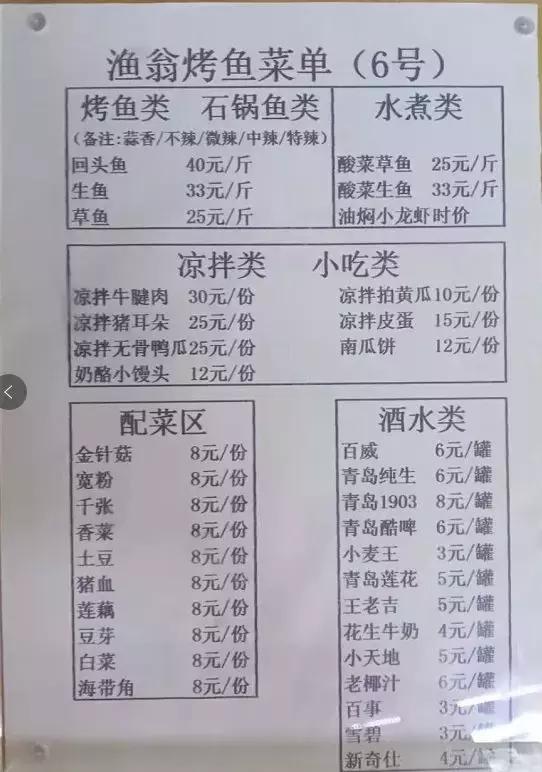 渔翁烤鱼菜单（6号）
烤鱼类 石锅鱼类
（备注:蒜香/不辣/微辣/中辣/特辣）
回头鱼 40元/斤
生鱼 33元/斤
草鱼 25元/斤
水煮类
酸菜草鱼 25元/斤
酸菜生鱼 33元/斤
油焖小龙虾时价
凉拌类 小吃类
凉拌牛腱肉 30元/份
凉拌猪耳朵 25元/份
凉拌无骨鸭瓜25元/份
奶酪小馒头 12元/份
凉拌拍黄瓜10元/份
凉拌皮蛋 15元/份
南瓜饼 12元/份
配菜区
金针菇 8元/份
宽粉 8元/份
千张 8元/份
香菜 8元/份
土豆 8元/份
猪血 8元/份
莲藕 8元/份
豆芽 8元/份
白菜 8元/份
海带角 8元/份
酒水类
百威 6元/罐
青岛纯生 6元/罐
青岛1903 8元/罐
青岛酷啤 6元/罐
小麦王 3元/罐
青岛莲花 5元/罐
王老吉 5元/罐
花生牛奶 4元/罐
小天地 5元/罐
老椰汁 6元/罐
百事 3元/罐
雪碧 3元/罐
新奇仕 4元/罐